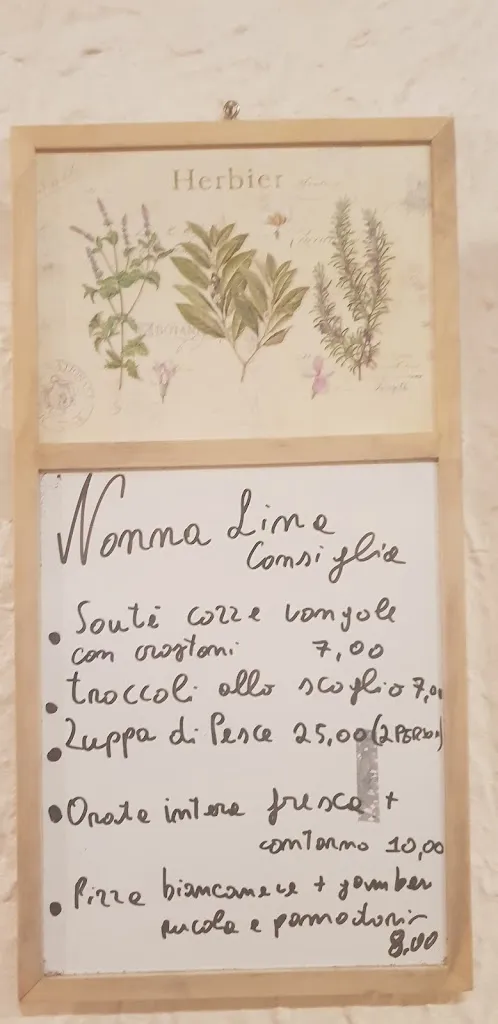 Herbier
Nonna Lina
Consiglia
• Soutè cozze vongole
con crostoni 7,00
• troccoli allo scoglio 7,00
• Zuppa di Pesce 25,00 (2 PERSON)
• Orata intera fresca +
contorno 10,00
• Pizza biancaneve + gamberi
rucola e pomodorini
8,00